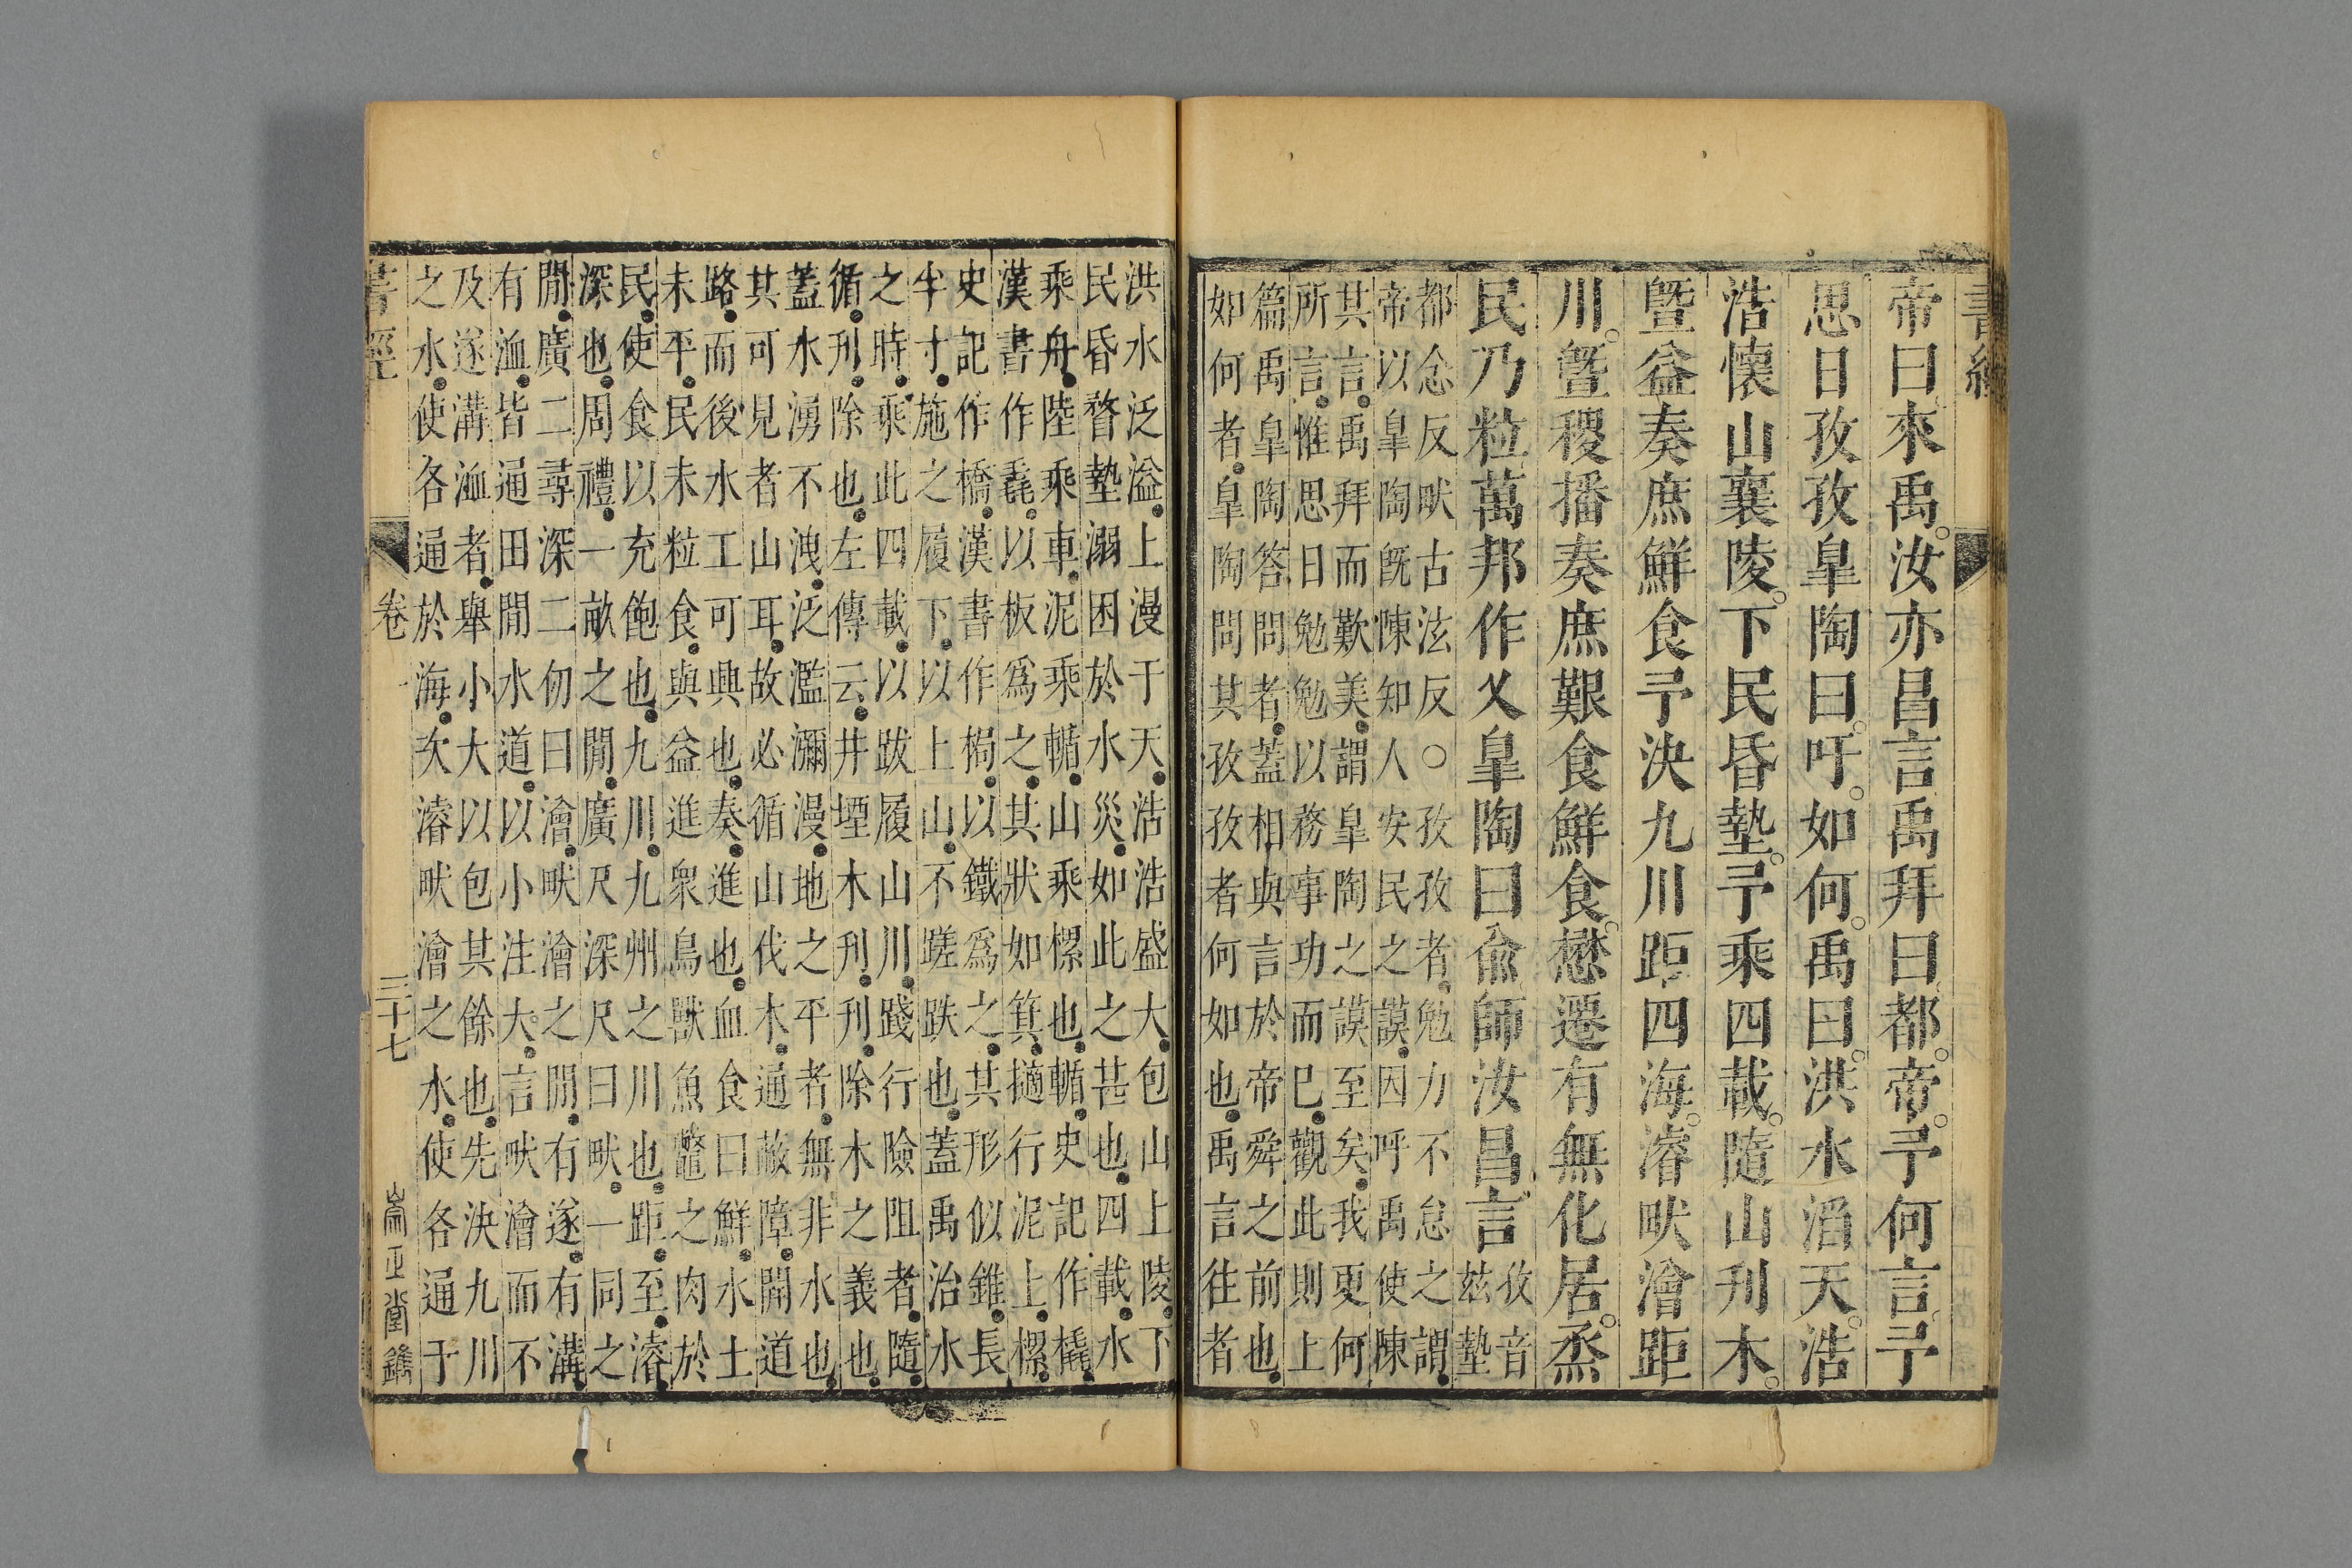 書經
帝曰來禹汝亦昌言禹拜曰都帝予何言予
思日孜孜皐陶曰吁如何禹曰洪水滔天浩
浩懷山襄陵下民昏墊予乘四載隨山刊木
曁益奏庶鮮食予決九川距四海濬畎澮距
川曁稷播奏庶艱食鮮食懋遷有無化居烝
民乃粒萬邦作乂皐陶曰兪師汝昌言孜音
玆墊
都念反畎古泫反○孜孜者勉力不怠之謂
帝以皐陶旣陳知人安民之謨因呼禹使陳
其言禹拜而歎美謂皐陶之謨至矣我更何
所言惟思日勉勉以務事功而巳觀此則上
篇禹皐陶答問者蓋相與言於帝舜之前也
如何者皐陶問其孜孜者何如也禹言往者
洪水泛溢上漫于天浩浩盛大包山上陵下
民昏瞀墊溺困於水災如此之甚也四載水
乘舟陸乘車泥乘輴山乘樏也輴史記作橇
漢書作毳以板爲之其狀如箕擿行泥上樏
史記作橋漢書作梮以鐵爲之其形似錐長
半寸施之履下以上山不蹉跌也蓋禹治水
之時乘此四載以跋履山川踐行險阻者隨
循刊除也左傳云井堙木刊刊除木之義也
蓋水湧不洩泛濫瀰漫地之平者無非水也
其可見者山耳故必循山伐木通蔽障開道
路而後水工可興也奏進也血食曰鮮水土
未平民未粒食與益進衆鳥獸魚鼈之肉於
民使食以充飽也九川九州之川也距至濬
深也周禮一畝之閒廣尺深尺曰畎一同之
閒廣二尋深二仞曰澮畎澮之閒有遂有溝
有洫皆通田閒水道以小注大言畎澮而不
及遂溝洫者舉小大以包其餘也先決九川
之水使各通於海次濬畎澮之水使各通于
書經 卷一 三十七 崇正堂鐫